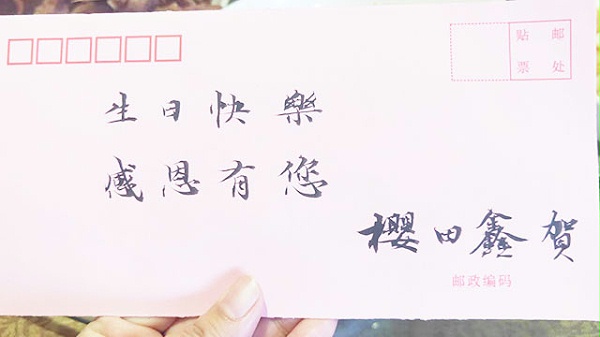 贴 邮
票 处
生日快樂
感恩有您
櫻田鑫賀
邮政编码